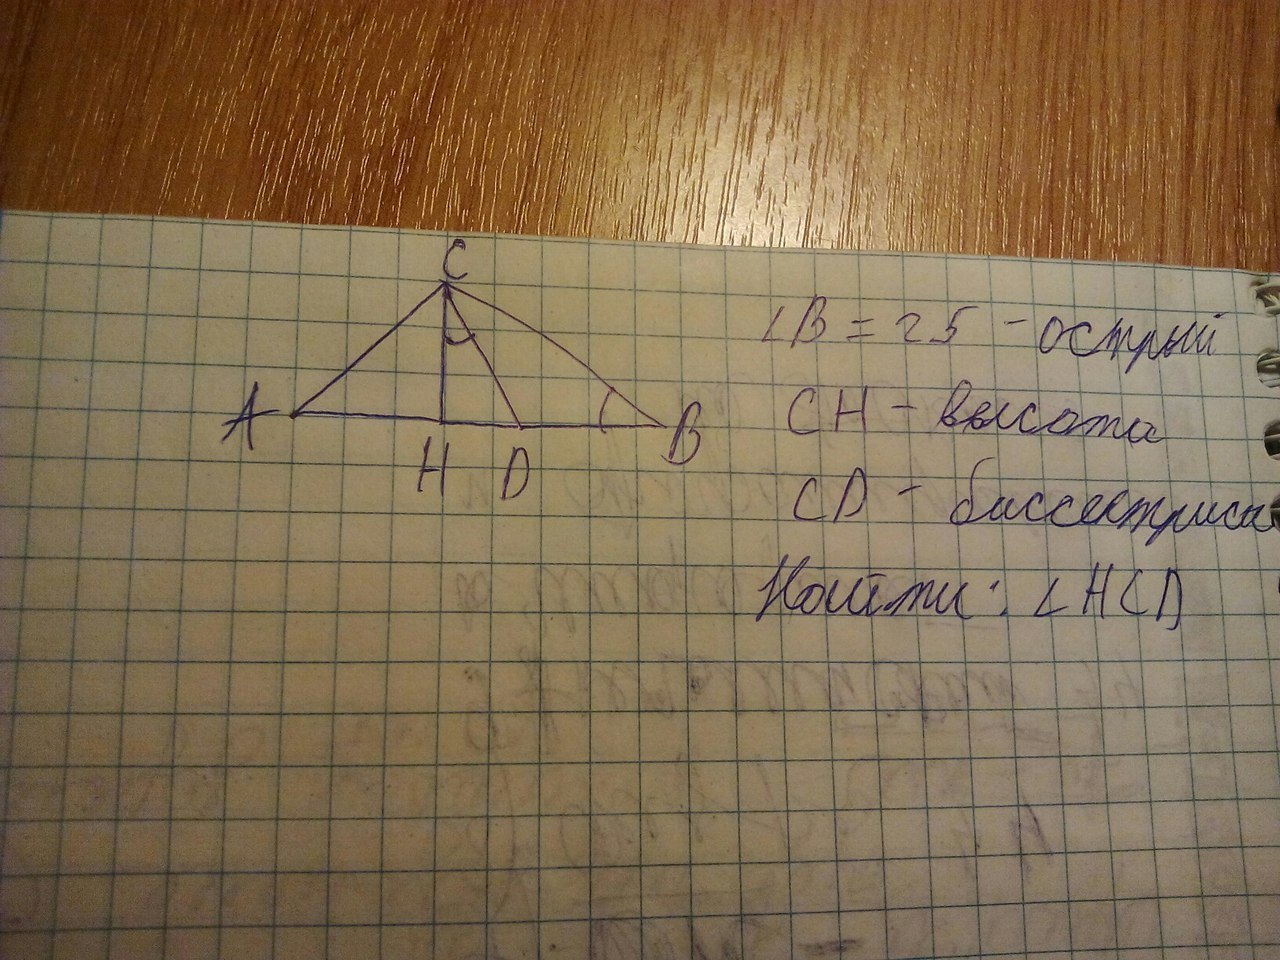 C
A
H D
B
∠B = 25 - острый
CH - высота
CD - биссектриса
Найти: ∠HCD